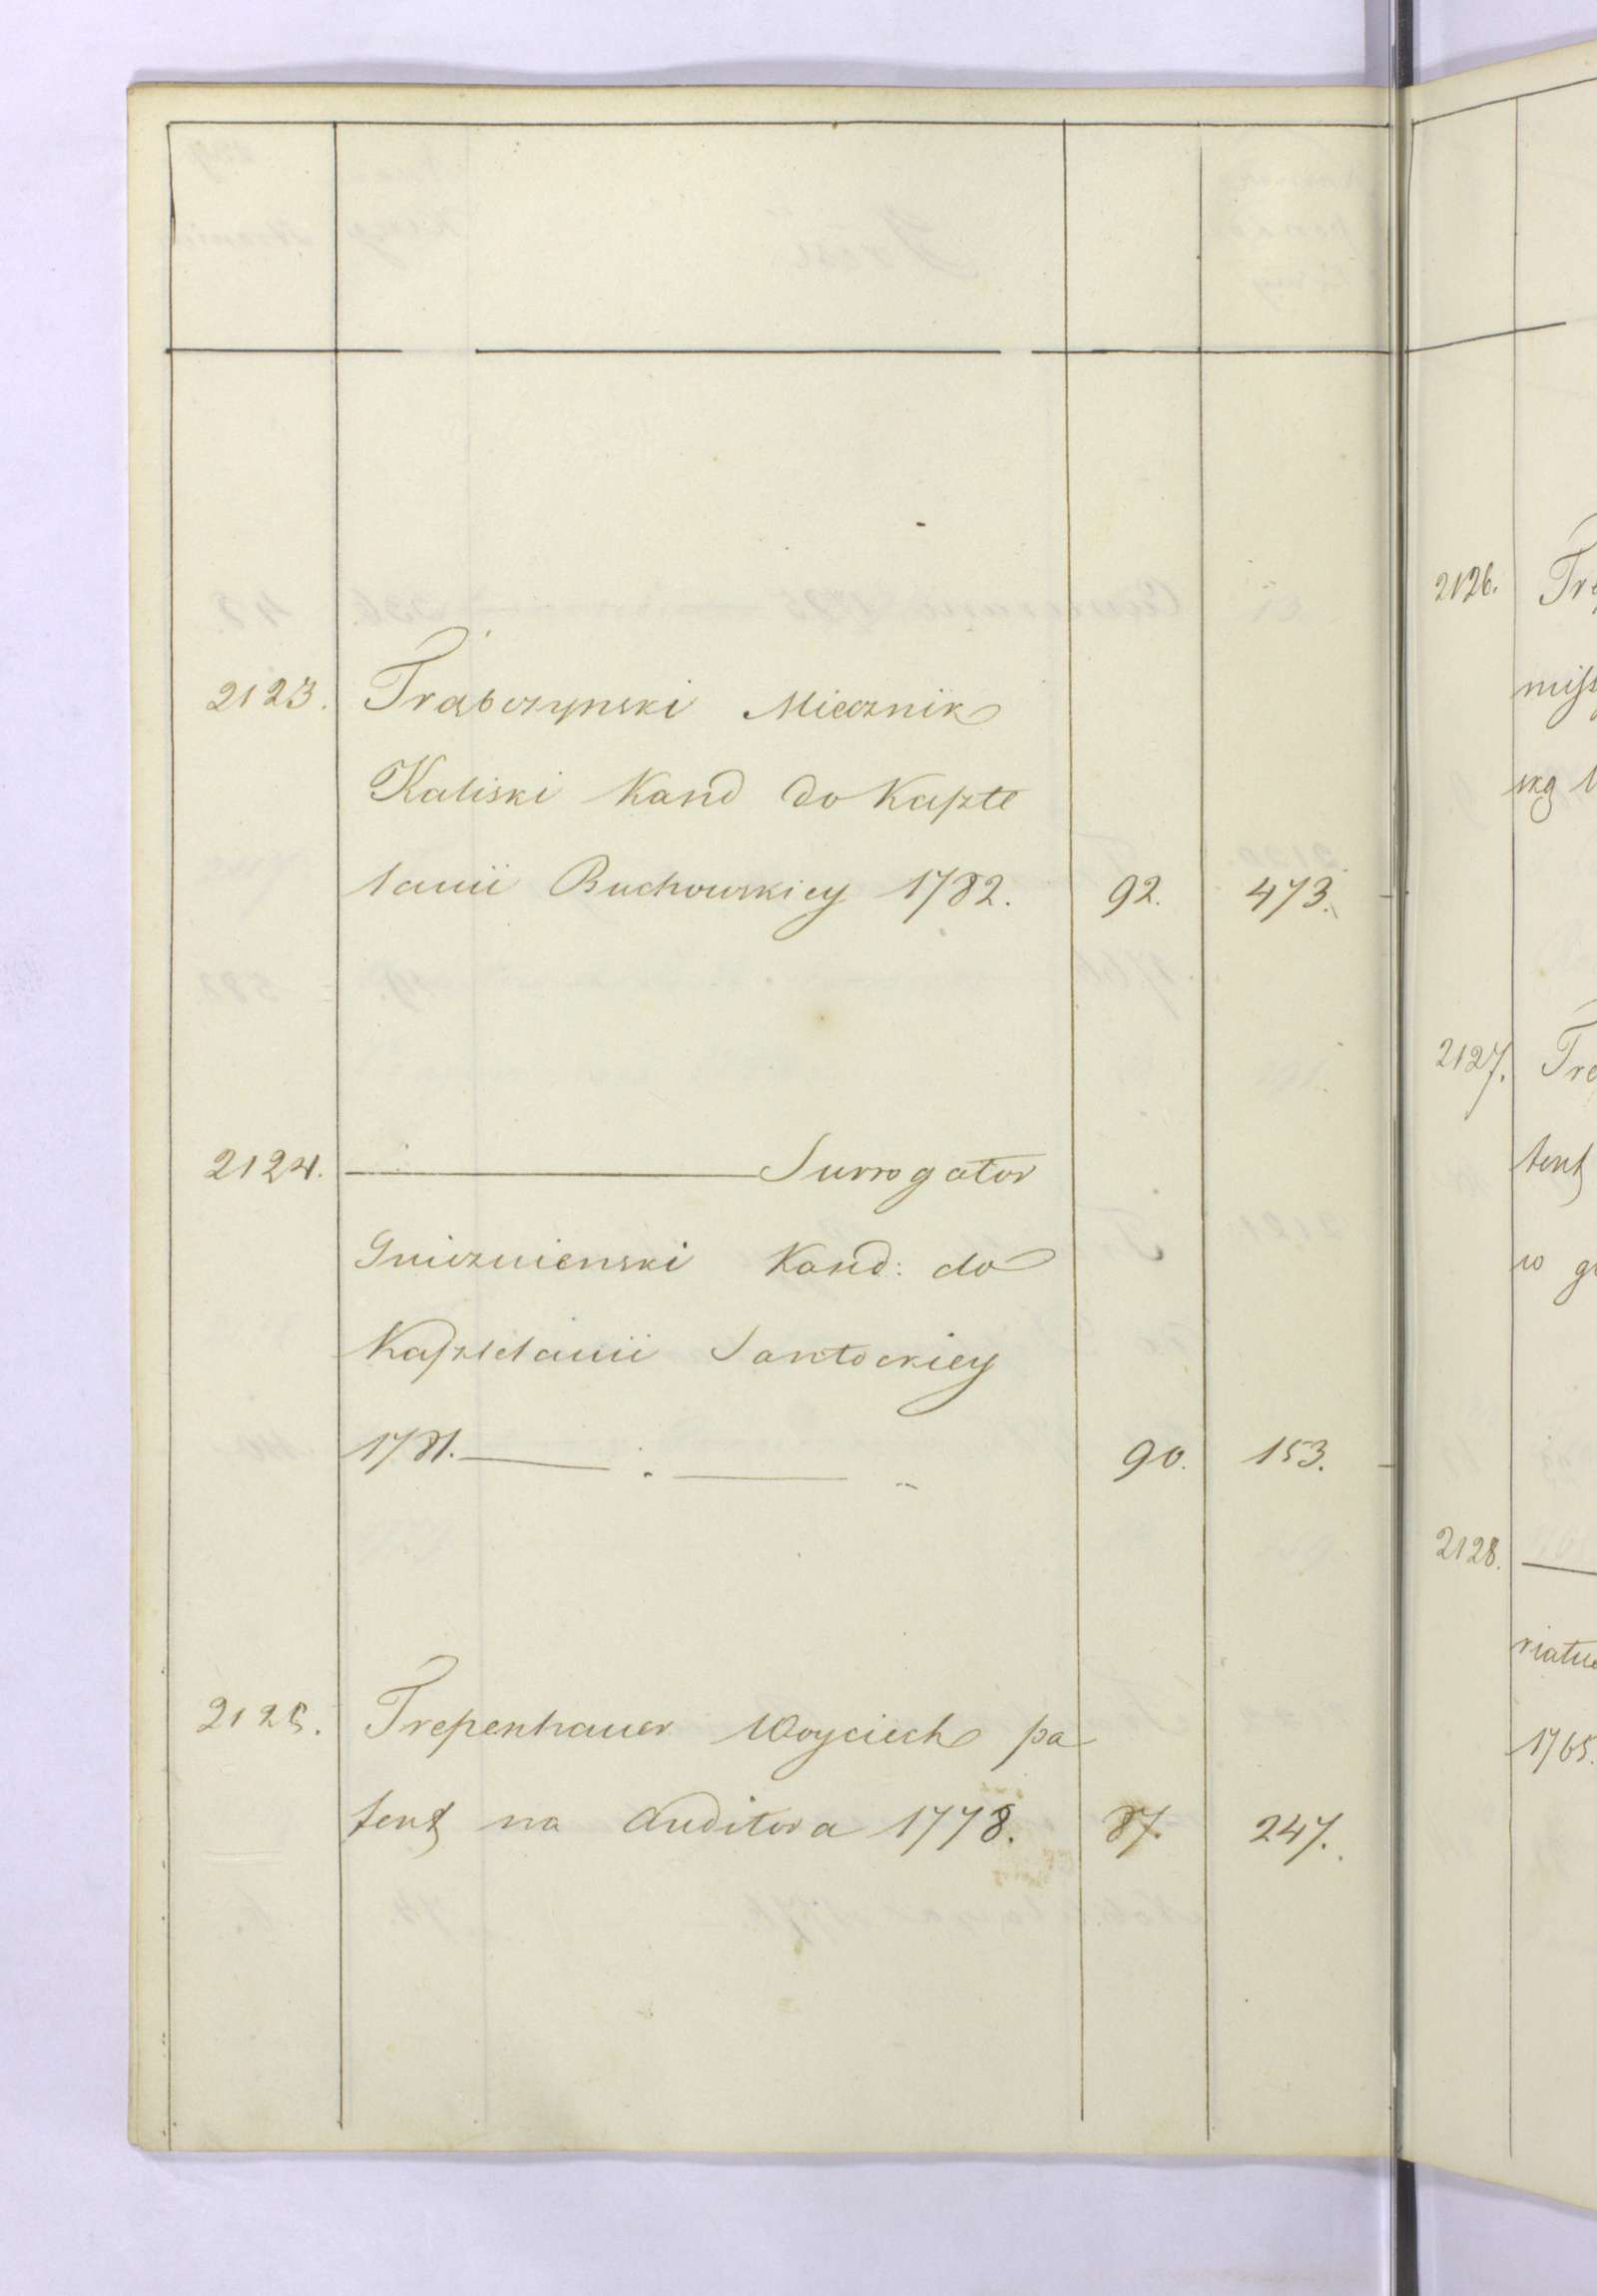 2123. Trąbczynski Miecznik
Kaliski Kand do Kaszte
lanii Buchowskiey 1782. 92. 473.
2124. ——— Surrogator
Gnieznienski Kand: do
Kasztelanii Santockiey
1781. ——— . ——— 90. 153.
2125. Trepenhauer Woyciech pa
tent na Auditora 1778. 87. 247.
2126. Tre
miss
skg
2127. Tre
tent
w
2128. ———
riatu
1765.